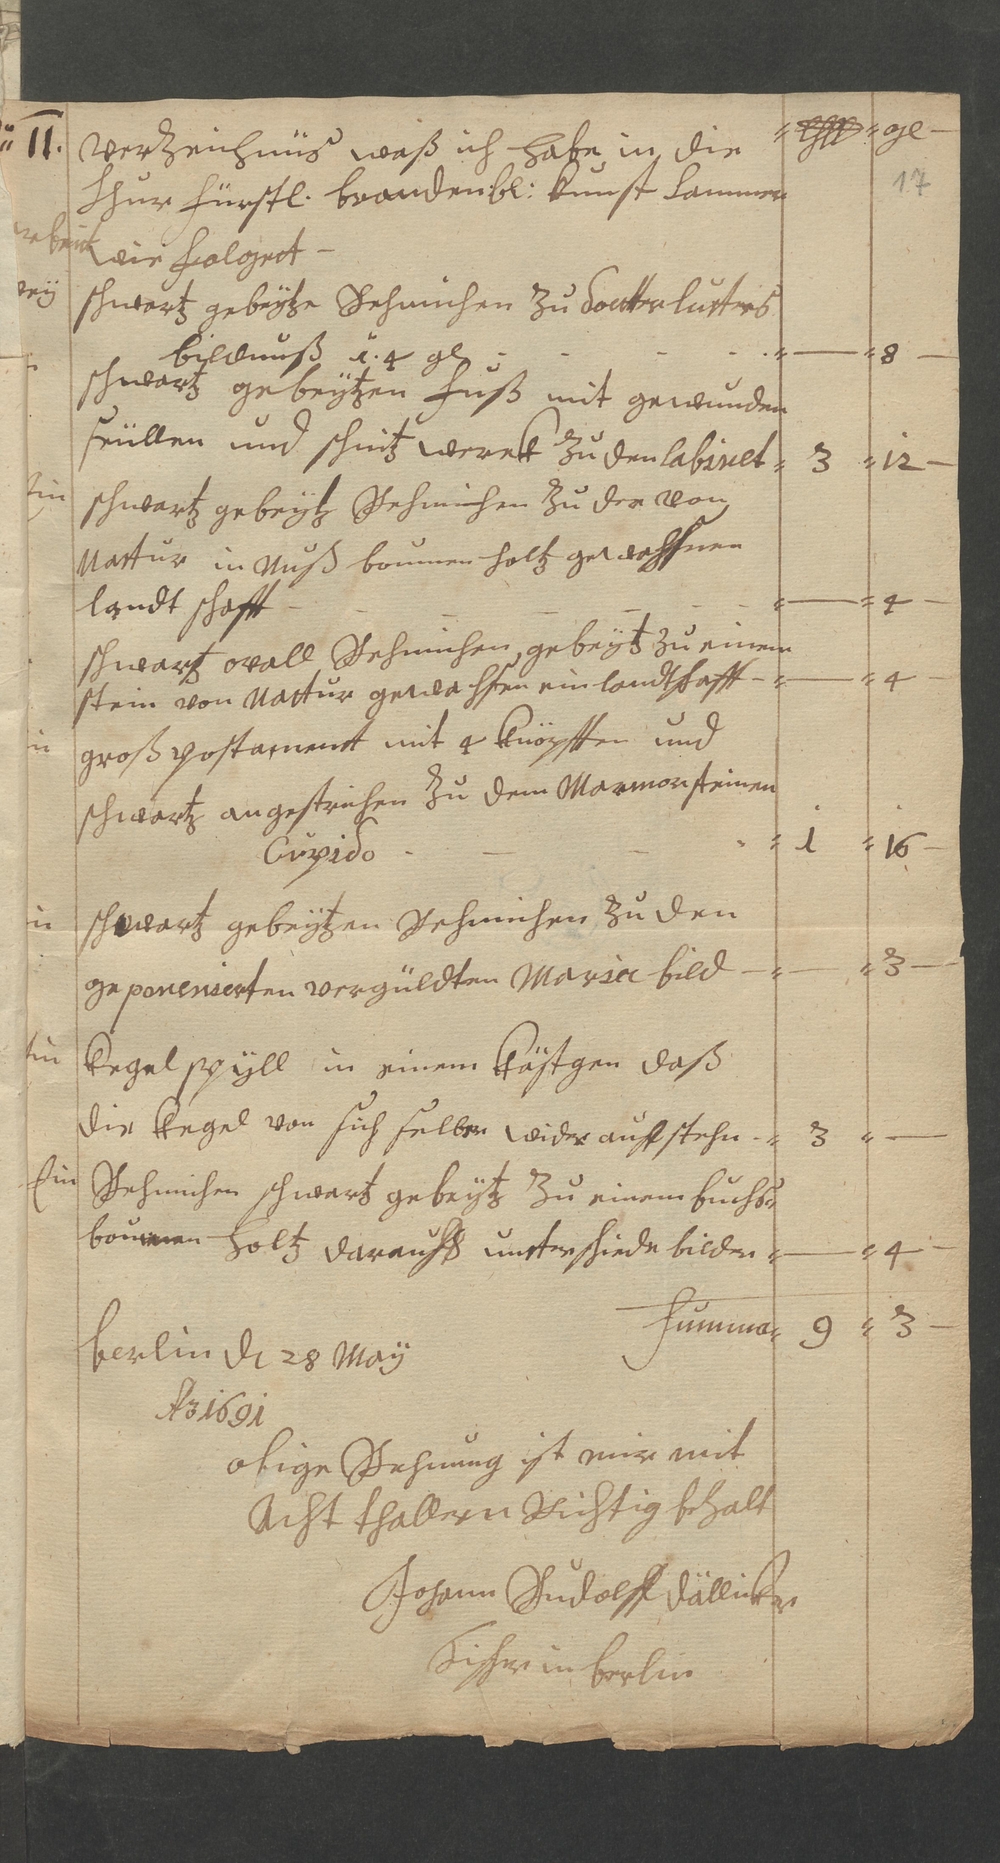 II. Verzeichnüs waß ich habe in die " thll " gl
17
Chur Fürstl: brandenbl: Kunst Cammer
wie folget
schwartz gebeytze Rehmichen zu docktter lutters
bildnuß à 4 gl - - - " — " 8 —
schwartz gebeytzen Fuß mit gewunden
seüllen und schnitz werck zu den Cabinet " 3 " 12 —
Ein schwartz gebeytz Rehmichen zu der von
Nattur in Nuß boumen holtz gewachssnen
landt schafft - - - " — " 4 —
schwartz ovall Rehmichen, gebeytz zu einem
stein von Nattur gewachssen ein landtschafft - " — " 4 —
groß postament mit 4 Knöpffen und
schwartz angestrichen zu dem Marmorsteinen
Cupido - - - " 1 " 16 —
schwartz gebeytzen Rehmichen zu den
geponensierten vergüldten Maria bild — " — " 3 —
Ein Kegel spyll in einem Kästgen daß
die Kegel von sich selber wider auff stehn - " 3 " —
Ein Rehmichen schwartz gebeytz zu einem buchs-
boumen holtz darauff untterschiede bilder " — " 4 —
Summa " 9 " 3 —
berlin d 28 May
Ao 1691
obige Rehnung ist mir mit
Acht thallern Richtig bezalt
Johann Rudolff Dällicker
Tischer in berlin